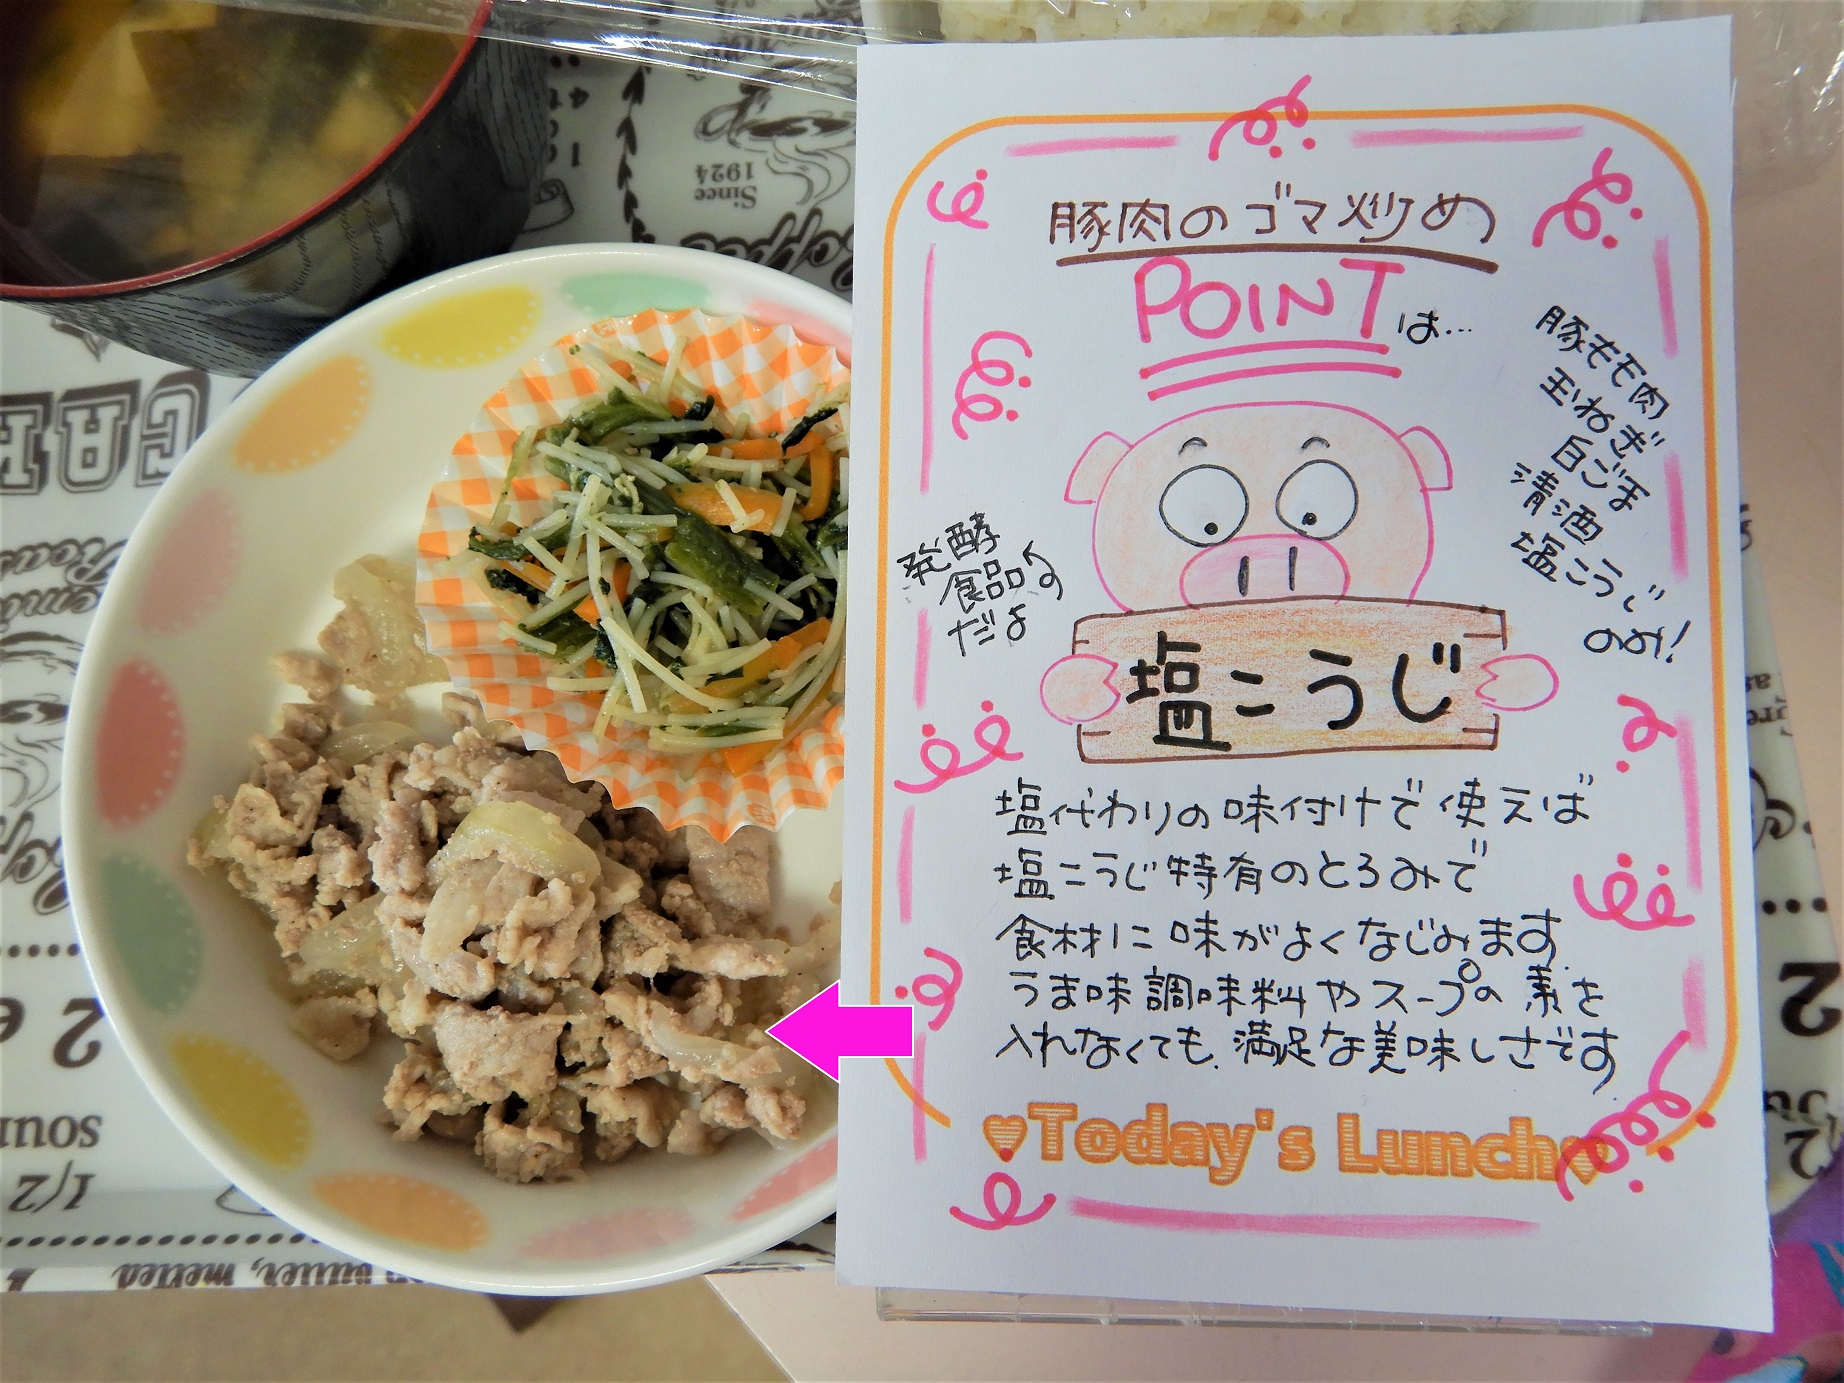 豚肉のゴマ炒め
POINTは…
豚もも肉
玉ねぎ
白ごま
清酒
塩こうじ
のみ!
発酵
食品
だよ
塩こうじ
塩代わりの味付けで使えば
塩こうじ特有のとろみで
食材に味がよくなじみます。
うま味調味料やスープの素を
入れなくても、満足な美味しさです
♥Today's Lunch♥
Since
1924
Coffee
1/2
2